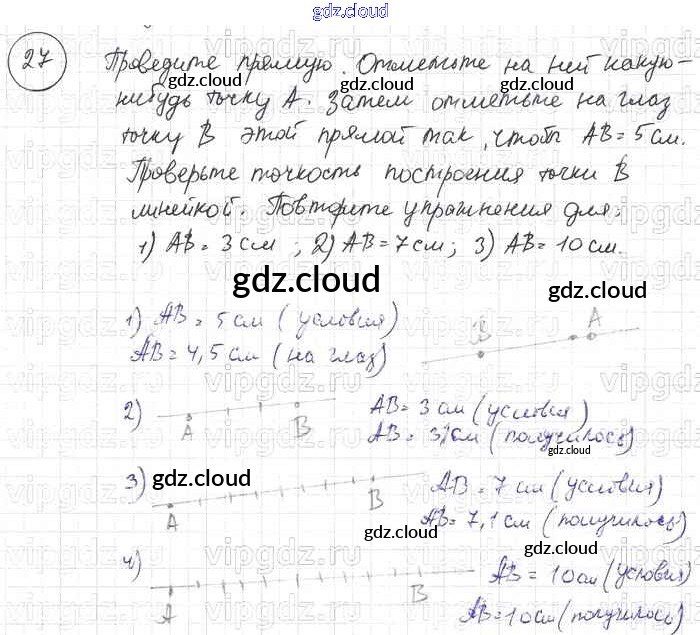 gdz.cloud
27
Проведите прямую. Отметьте на ней какую-
нибудь точку A. Затем отметьте на глаз
точку B этой прямой так, чтобы AB = 5 см.
Проверьте точность построения точки B
линейкой. Повторите упражнения для:
1) AB = 3 см ; 2) AB = 7 см; 3) AB = 10 см.
gdz.cloud
1) AB = 5 см ( условия)
AB = 4,5 см ( на глаз)
B A
2) A B
AB = 3 см (условия)
AB = 3,1 см ( получилось)
3) A B
AB = 7 см ( условия)
AB = 7,1 см ( получилось)
4) A B
AB = 10 см (условия)
AB = 10 см (получилось)